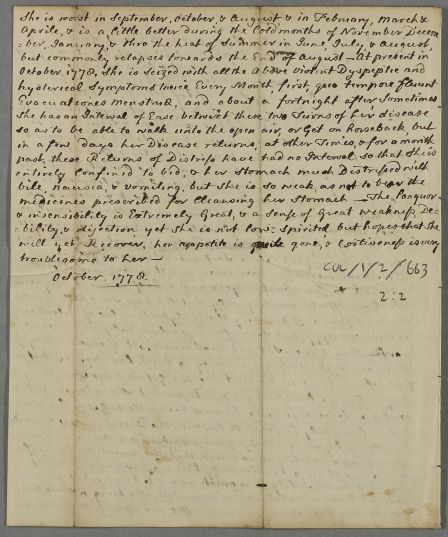 She is worst in September, October, & August & in February, March &
Aprile, & is a little better during the Cold months of November Decem-
=ber, January, & thro the heat of Summer in June, July, & August,
but commonly relapses towards the End of August — At present in
October 1778, She is seized with all the Above violent Dyspeptic and
hysterical Symptoms twice Every Month, first, quo tempore fluunt
Evacuationes menstruæ, and about a fortnight after, Sometimes
She has an Interval of Ease betwixt there two Turns of her disease
so as to be able to walk into the open air, or Get on horseback, but
in a few days her Disease returns, at other Times, & for a month
past, these Returns of Distress have had no Interval so that she is
entirely Confined to bed, & her stomach much Distressed with
bile, nausea, & vomiting, but She is so weak as not to bear the
medicines prescribed for Cleansing her Stomach — The languor
& insensibility is Extremely Great, & a sense of Great weakness, De-
=bility, & dejection, yet She is not low-Spirited but hopes that She
will yet Recover, her appetite is quite gone, & Costiveness is very
troublesome to her —
October 1778.
CUL/1/2/663
2:2